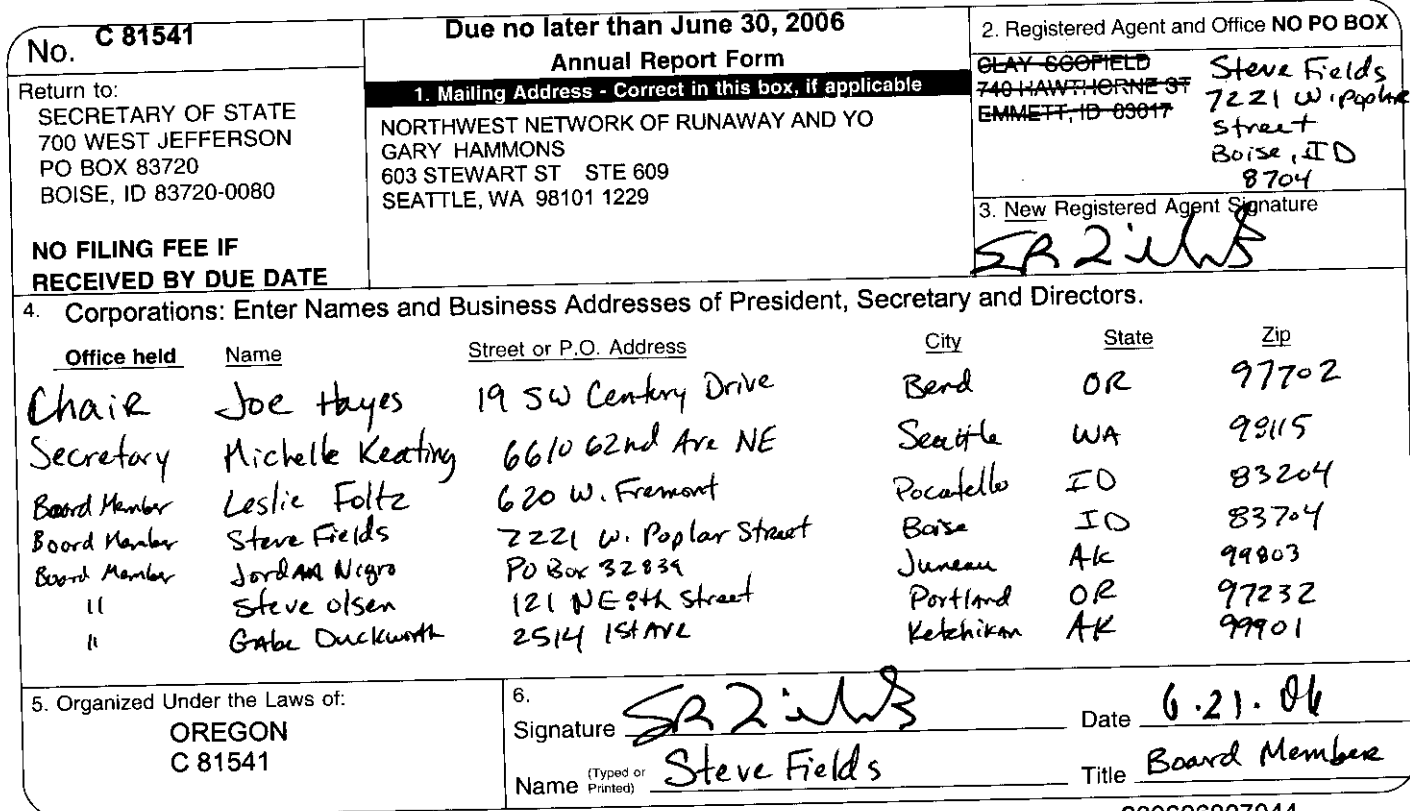 No. C 81541
Return to:
SECRETARY OF STATE
700 WEST JEFFERSON
PO BOX 83720
BOISE, ID 83720-0080
NO FILING FEE IF
RECEIVED BY DUE DATE
Due no later than June 30, 2006
Annual Report Form
1. Mailing Address - Correct in this box, if applicable
NORTHWEST NETWORK OF RUNAWAY AND YO
GARY HAMMONS
603 STEWART ST STE 609
SEATTLE, WA 98101 1229
2. Registered Agent and Office NO PO BOX
CLAY SCOFIELD
740 HAWTHORNE ST
EMMETT, ID 83617
Steve Fields
7221 W. Poplar
Street
Boise, ID
8704
3. New Registered Agent Signature
4. Corporations: Enter Names and Business Addresses of President, Secretary and Directors.
Office held Name Street or P.O. Address City State Zip
Chair Joe Hayes 19 SW Century Drive Bend OR 97702
Secretary Michelle Keating 6610 62nd Ave NE Seattle WA 98115
Board Member Leslie Foltz 620 W. Fremont Pocatello ID 83204
Board Member Steve Fields 7221 W. Poplar Street Boise ID 83704
Board Member Jordan Nigro PO Box 32839 Juneau AK 99803
" Steve Olsen 121 NE 8th Street Portland OR 97232
" Gabe Duckworth 2514 1st Ave Ketchikan AK 99901
5. Organized Under the Laws of:
OREGON
C 81541
6.
Signature
Date 6.21.06
Name (Typed or Printed) Steve Fields
Title Board Member